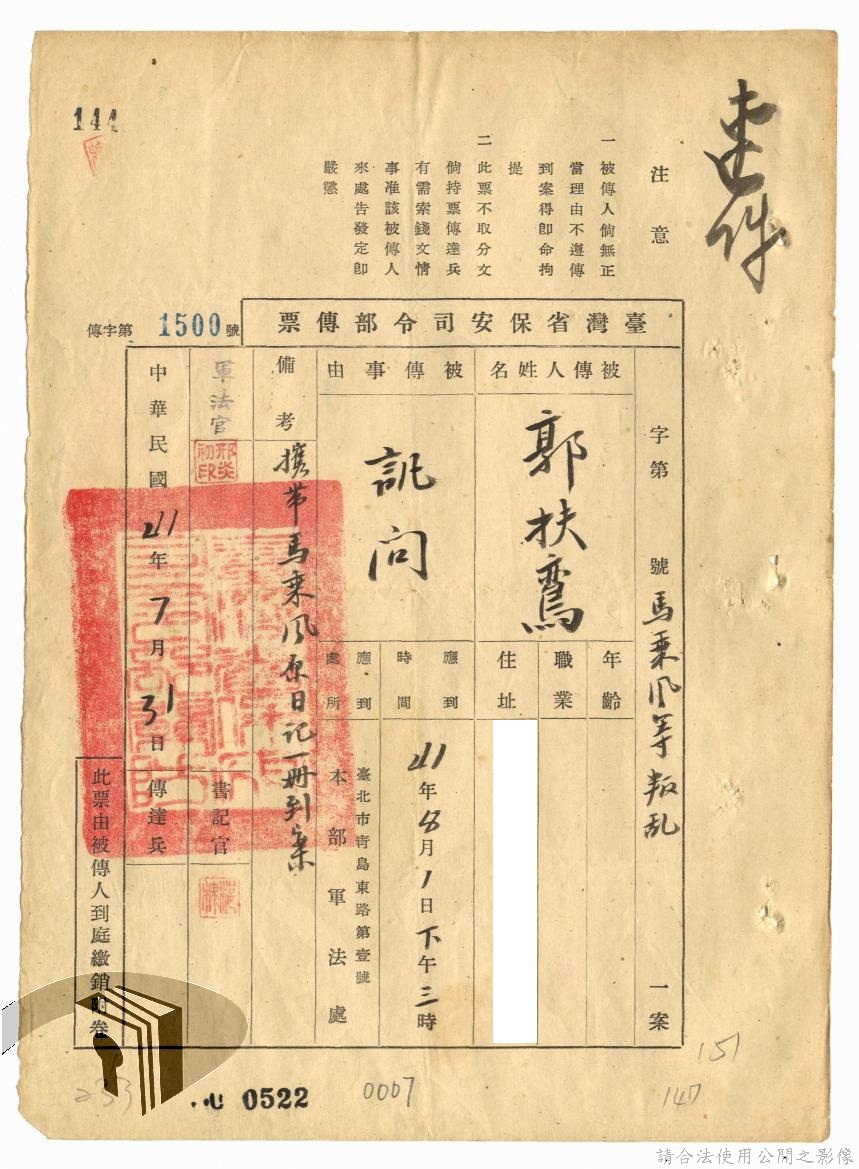 速件
注意
一 被傳人倘無正
當理由不遵傳
到案得卽命拘
提
二 此票不取分文
倘持票傳達兵
有需索錢文情
事准該被傳人
來處告發定卽
嚴懲
144
臺灣省保安司令部傳票
傳字第 1500 號
字第 號 馬乘風等叛乱 一案
被傳人姓名
郭扶鸞
年齡
職業
住址
被傳事由
訊問
應到時間
41年8月1日下午三時
應到處所
臺北市青島東路第壹號
本部軍法處
備考
携帶馬乘風原日記一冊到案
軍法官
邢炎初印
書記官
中華民國41年7月31日
傳達兵
此票由被傳人到庭繳銷附卷
151
147
0007
0522
233
請合法使用公開之影像